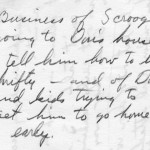 Business of Scroog
going to Don's house
tell him how to b
thrifty - and of D
and kids trying to
get him to go home
early.